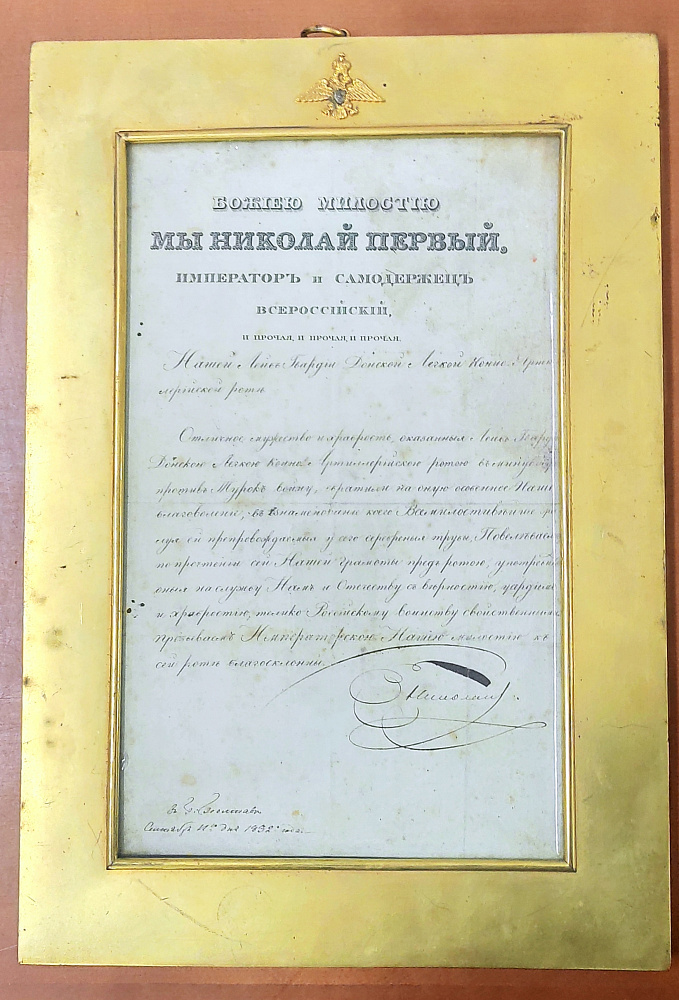 БОЖІЕЮ МИЛОСТІЮ
МЫ НИКОЛАЙ ПЕРВЫЙ,
ИМПЕРАТОРЪ и САМОДЕРЖЕЦЪ
ВСЕРОССІЙСКІЙ,
И ПРОЧАЯ, И ПРОЧАЯ, И ПРОЧАЯ.
Нашей Лейбъ Гвардіи Донской Легкой Конно Арти
лерійской ротѣ.
Отличное мужество и храбрость, оказанныя Лейбъ Гвард
Донскою Легкою Конно Артиллерійскою ротою въ минув
противъ Турокъ войну, обратили на оную особенное Наше
благоволеніе, въ ознаменованіе коего Всемилостивѣйше
ей препровождаемыя у сего серебреныя трубы, Повелѣваем
по прочтеніи сей Нашей грамоты предъ ротою, употреб
на службу Намъ и Отечеству съ вѣрностію, усердіем
и храбростію, только Россійскому воинству свойственным
Пребываемъ Императорскою Нашею милостію къ
сей ротѣ благосклонны.
Николай
въ
Сентября дня 1832 года